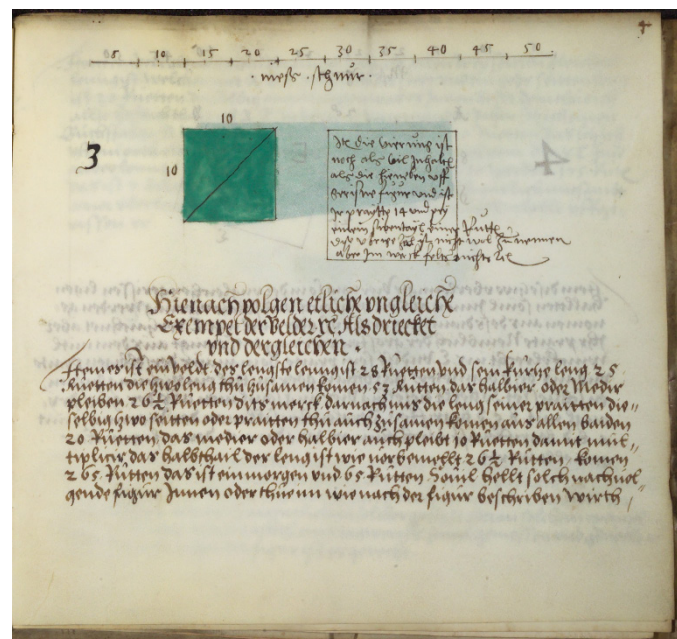 4
5 10 15 20 25 30 35 40 45 50
mess schnür
10
3
10
Ite die vierung ist
noch als vil Inhaltt
als die hieneben uff
figur und ist
14 und
einer Rutt
nicht wol zu nennen
aber Im
Hienach volgen etliche ungleiche
Exempel der velder rc Als drieckt
und dergleichen
Item es ist ein veldt des lengste leng ist 28 Ruetten und sein kurtze leng 25
Ruetten die zwo leng thu zusamen komen 53 Rutten das halbier oder medir
pleiben 26 ½ Ruetten dits merck darnach nim die leng seiner praitten die
selbig zwo seitten oder praitten thu auch zusamen komen aus allen baiden
20 Ruetten das medier oder halbier auch pleibt 10 Ruetten damit mul
tiplicir das halbthail der leng ist wie vor 26 ½ Rutten komen
265 Rutten das ist ein morgen und 65 Rutten Sovil hellt solch nachvol
gende figur Innen oder thut wie nach der figur beschriben wirth